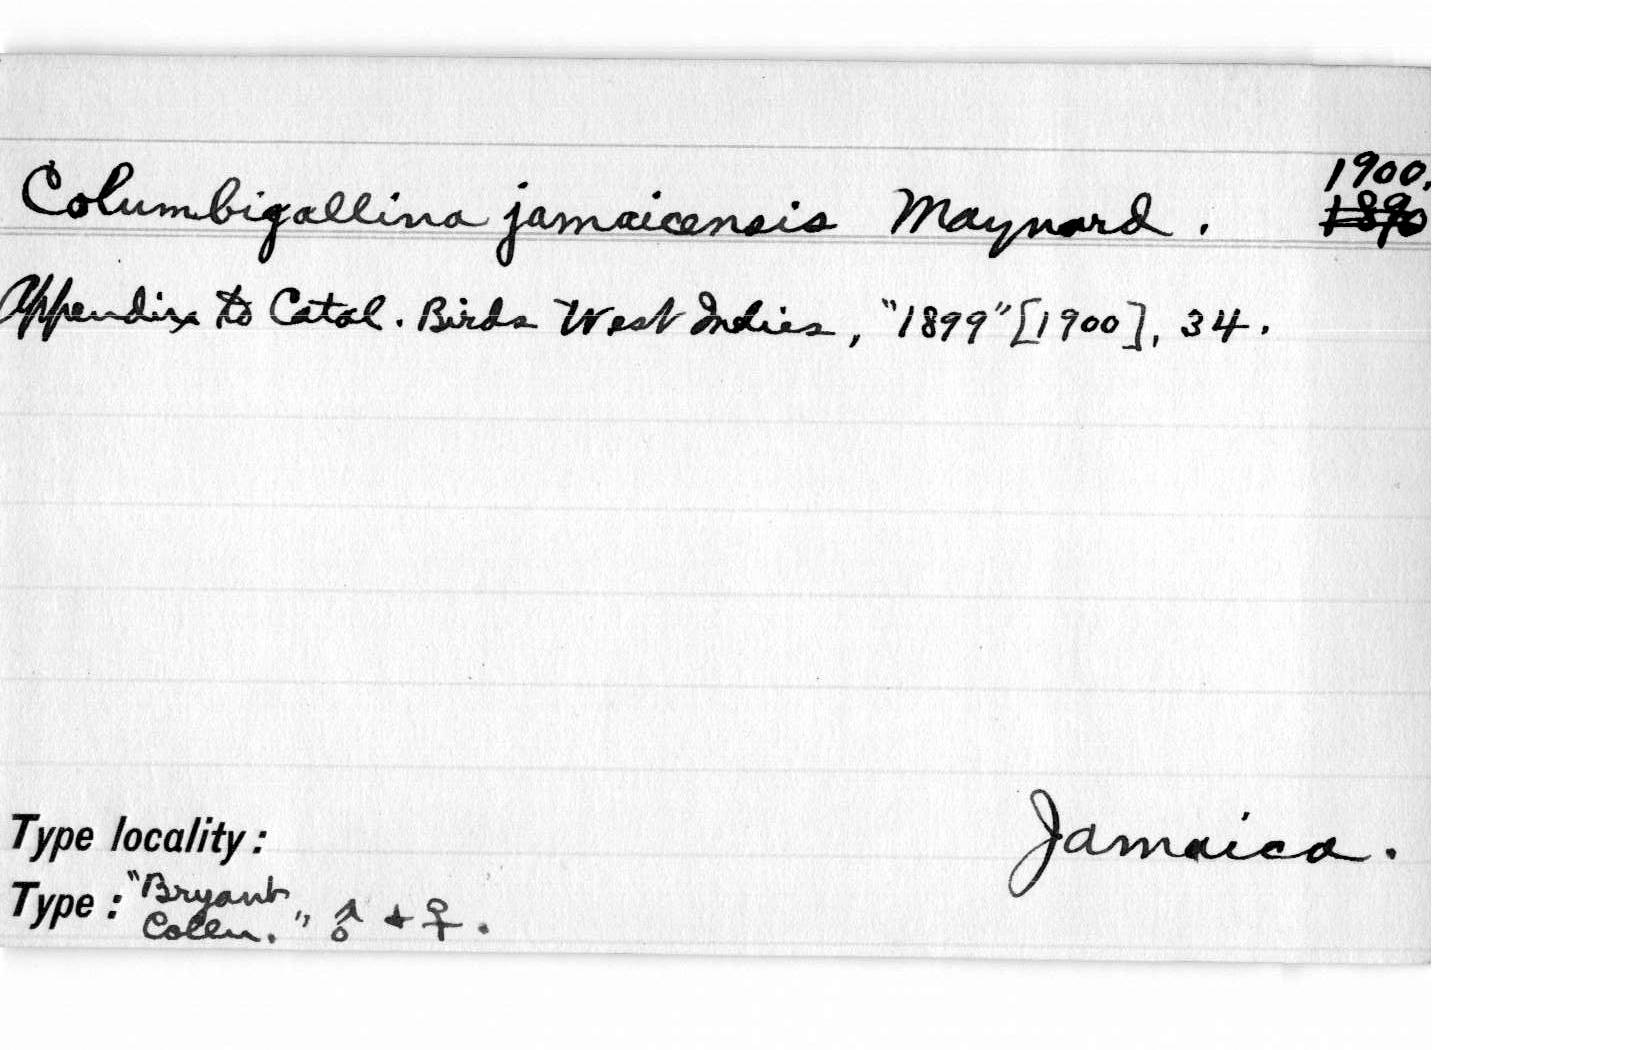 Columbigallina jamaicensis Maynard. 1900.
1890
Appendix to Catal. Birds West Indies, "1899" [1900], 34.
Jamaica.
Type locality:
Type: "Bryant
Colln." ♂ + ♀.